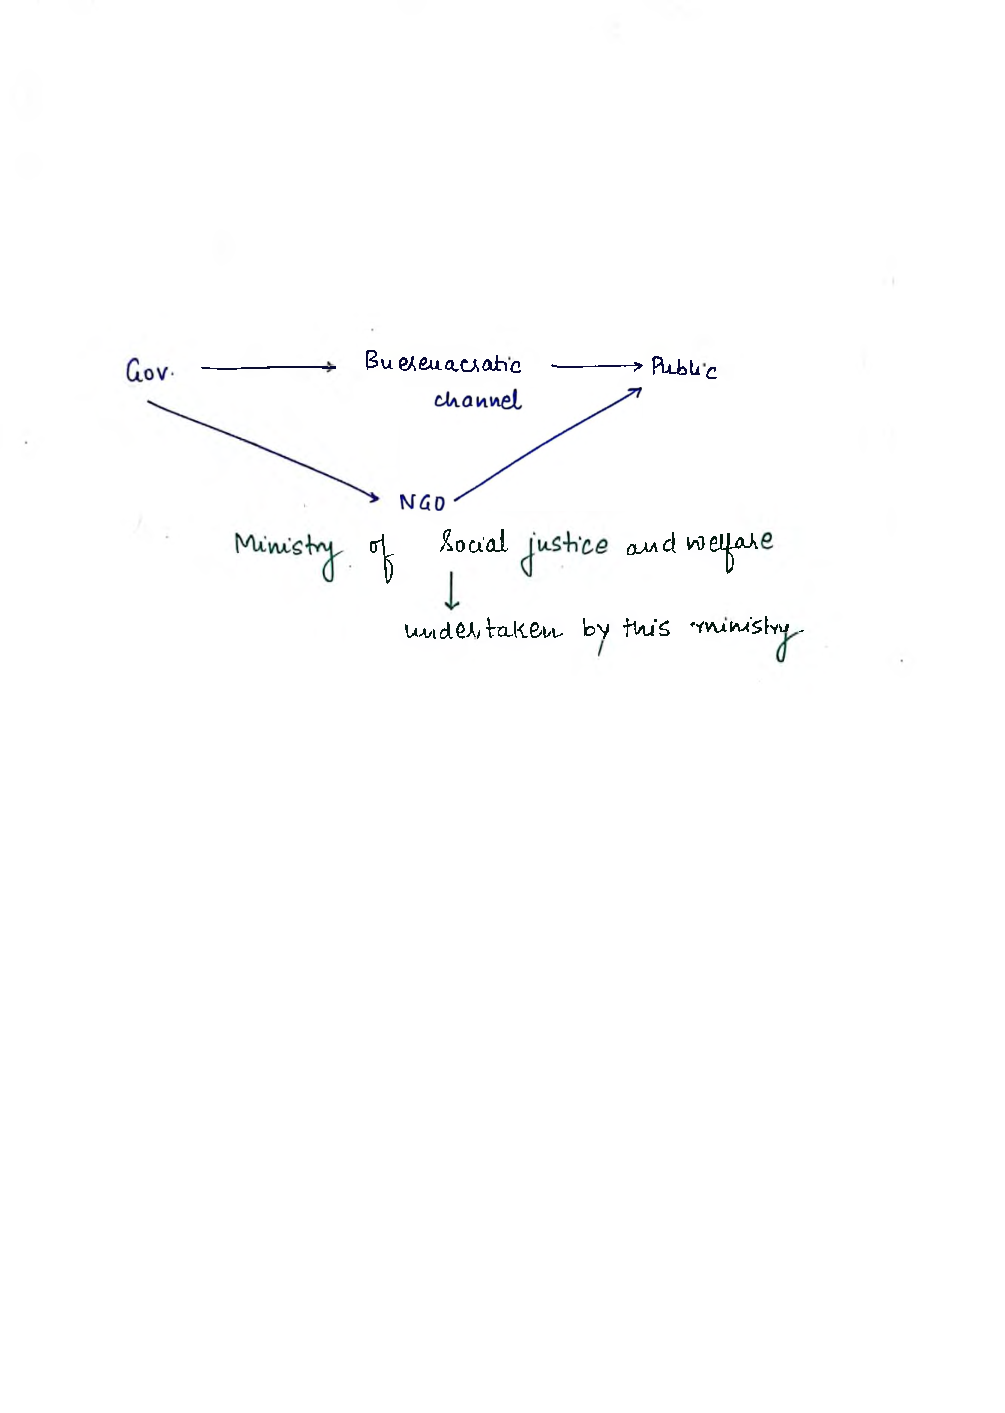 Gov. → Bureuacratic → Public
channel
NGO
Ministry of Social justice and welfare
↓
undertaken by this ministry